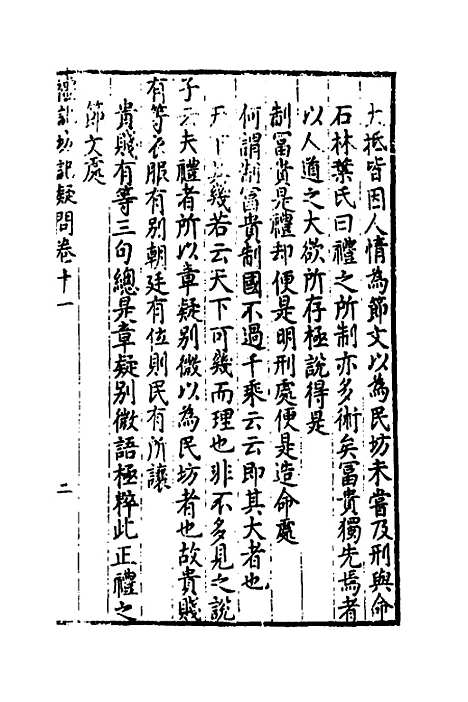 大抵皆因人情為節文以為民坊未嘗及刑與命
石林葉氏曰禮之所制亦多術矣冨貴獨先焉者
以人道之大欲所存極說得是
制冨貴是禮却便是明刑處便是造命處
何謂制富貴制國不過千乘云云即其大者也
天下其幾若云天下可幾而理也非不多見之說
子云夫禮者所以章疑别微以為民坊者也故貴賤
有等衣服有别朝廷有位則民有所讓
貴賤有等三句總是章疑别微語極粹此正禮之
節文處
禮記坊記疑問卷十一
二